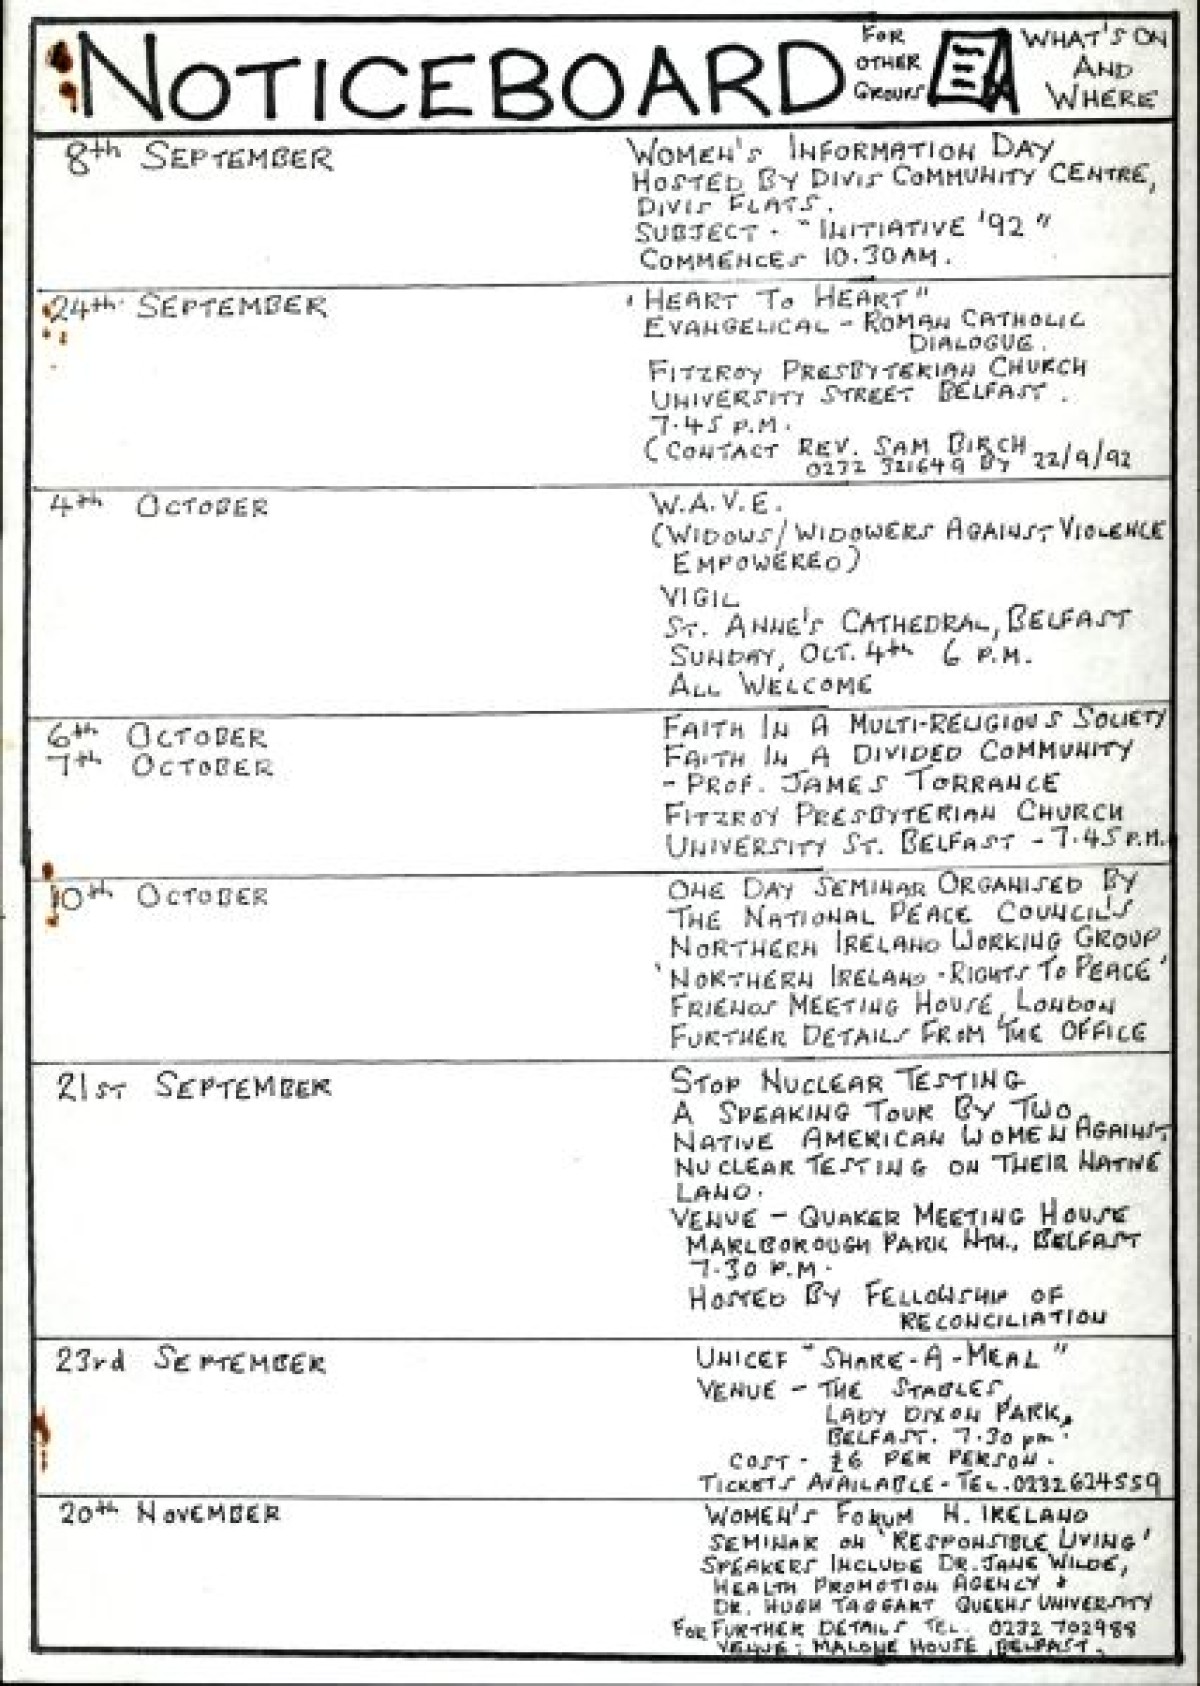 NOTICEBOARD
FOR
OTHER
GROUPS
WHAT'S ON
AND
WHERE
8th SEPTEMBER
WOMEN'S INFORMATION DAY
HOSTED BY DIVIS COMMUNITY CENTRE,
DIVIS FLATS.
SUBJECT - "INITIATIVE '92"
COMMENCES 10.30AM.
24th SEPTEMBER
'HEART TO HEART"
EVANGELICAL - ROMAN CATHOLIC
DIALOGUE.
FITZROY PRESBYTERIAN CHURCH
UNIVERSITY STREET BELFAST.
7.45 P.M.
(CONTACT REV. SAM BIRCH
0232 321649 BY 22/9/92
4th OCTOBER
W.A.V.E.
(WIDOWS/WIDOWERS AGAINST VIOLENCE
EMPOWERED)
VIGIL
ST. ANNE'S CATHEDRAL, BELFAST
SUNDAY, OCT. 4th 6 P.M.
ALL WELCOME
6th OCTOBER
7th OCTOBER
FAITH IN A MULTI-RELIGIOUS SOCIETY
FAITH IN A DIVIDED COMMUNITY
- PROF. JAMES TORRANCE
FITZROY PRESBYTERIAN CHURCH
UNIVERSITY ST. BELFAST - 7.45 P.M.
10th OCTOBER
ONE DAY SEMINAR ORGANISED BY
THE NATIONAL PEACE COUNCIL'S
NORTHERN IRELAND WORKING GROUP
'NORTHERN IRELAND - RIGHTS TO PEACE'
FRIENDS MEETING HOUSE, LONDON
FURTHER DETAILS FROM THE OFFICE
21ST SEPTEMBER
STOP NUCLEAR TESTING
A SPEAKING TOUR BY TWO
NATIVE AMERICAN WOMEN AGAINST
NUCLEAR TESTING ON THEIR NATIVE
LAND.
VENUE - QUAKER MEETING HOUSE
MARLBOROUGH PARK NTH., BELFAST
7.30 P.M.
HOSTED BY FELLOWSHIP OF
RECONCILIATION
23rd SEPTEMBER
UNICEF "SHARE-A-MEAL"
VENUE - THE STABLES,
LADY DIXON PARK,
BELFAST. 7.30 pm.
COST - £6 PER PERSON.
TICKETS AVAILABLE - TEL. 0232 624559
20th NOVEMBER
WOMEN'S FORUM N. IRELAND
SEMINAR ON 'RESPONSIBLE LIVING'
SPEAKERS INCLUDE DR. JANE WILDE,
HEALTH PROMOTION AGENCY &
DR. HUGH TAGGART QUEENS UNIVERSITY
FOR FURTHER DETAILS TEL. 0232 702988
VENUE: MALONE HOUSE, BELFAST.